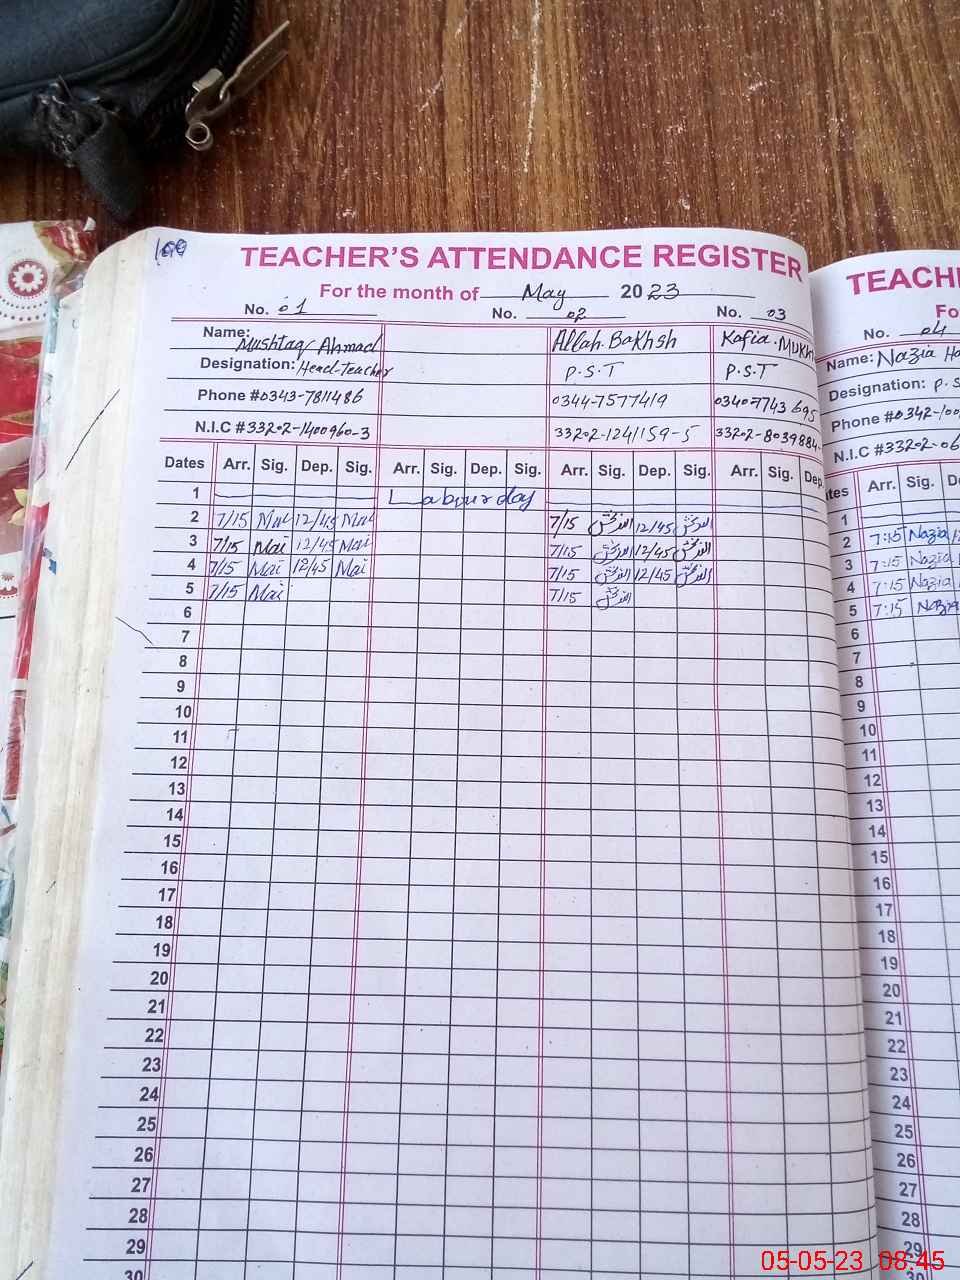 TEACHER'S ATTENDANCE REGISTER
For the month of May 2023
No. 01 No. 02 No. 03
Name: Mushtaq Ahmad Allah Bakhsh Kafia Mukh
Designation: Head-Teacher P.S.T P.S.T
Phone #0343-7811486 0344-7577419 0340-7743695
N.I.C #33202-1400960-3 33202-1241159-5 33202-8039884-
Dates Arr. Sig. Dep. Sig. Arr. Sig. Dep. Sig. Arr. Sig. Dep. Sig. Arr. Sig. Dep.
1 Labour day
2 7/15 12/45 7/15 12/45
3 7/15 12/45 7/15 12/45
4 7/15 12/45 7/15 12/45
5 7/15 7/15
6
7
8
9
10
11
12
13
14
15
16
17
18
19
20
21
22
23
24
25
26
27
28
29
30
TEACH
Fo
No. 04
Name: Nazia Ha
Designation: P.S
Phone #0342-100
N.I.C #33202-06
ates Arr. Sig. De
1
2 7:15 Nazia
3 7:15 Nazia
4 7:15 Nazia
5 7:15 Nazia
6
7
8
9
10
11
12
13
14
15
16
17
18
19
20
21
22
23
24
25
26
27
28
29
30
05-05-23 08:45